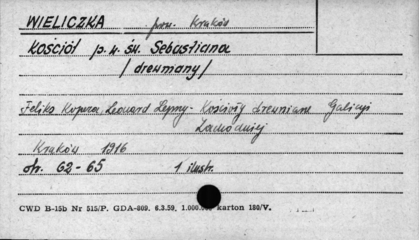 WIELICZKA pow. Kraków
KOŚCIÓŁ p.w. św. Sebastiana
/drewniany/
Feliks Kopera, Leonard Lepszy - Kościoły drewniane Galicyi
Zachodniej
Kraków 1916
str. 62-65 1 ilustr.
CWD B-15b Nr 515/P. GDA-809. 6.3.59, 1.000.000 karton 180/V.